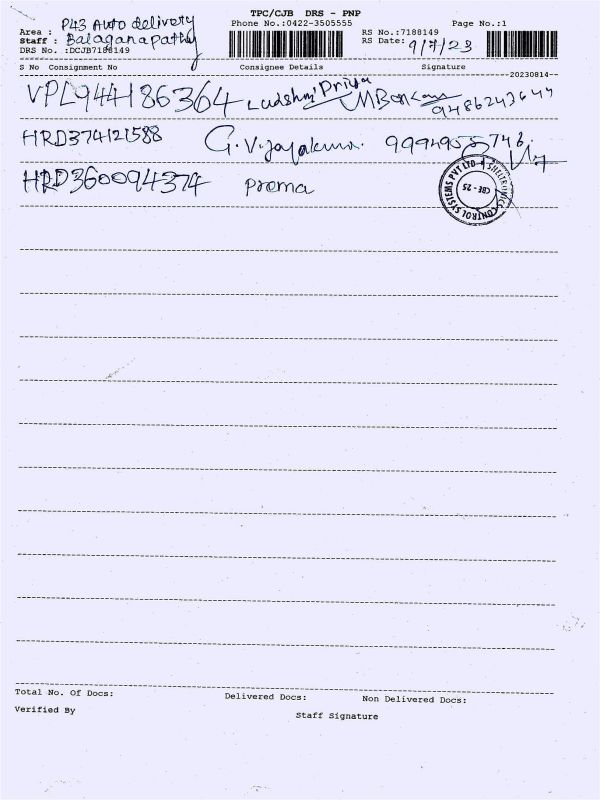 TPC/CJB DRS - PNP
Area : P43 Auto delivery Phone No.:0422-3505555 RS No.:7188149 Page No.:1
Staff : Balaganapathy RS Date: 9/7/23
DRS No. :DCJB7188149
S No Consignment No Consignee Details Signature
--20230814--
VPL944186364 Priya 9486243644
HRD374121588 G. Vijayakumar. 9994955746.
HRD360094374 Prema
SHELTRONICS CONTROL SYSTEMS PVT LTD
CBE - 25
Total No. Of Docs: Delivered Docs: Non Delivered Docs:
Verified By Staff Signature